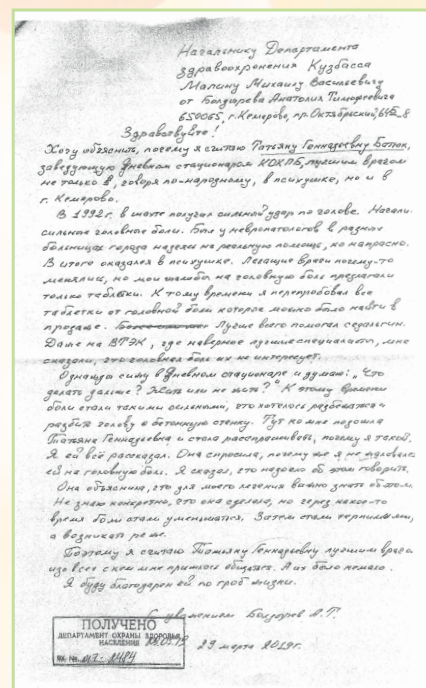 Начальнику Департамента
здравоохранения Кузбасса
Малину Михаилу Васильевичу
от Болдырева Анатолия Тимофеевича
650065, г. Кемерово, пр. Октябрьский,
Здравствуйте!
Хочу объяснить, почему я считаю Татьяну Геннадьевну
заведующую дневном стационаром КОКПБ, лучшим врачом
не только в, говоря по-народному, в психушке, но и в
г. Кемерово.
В 1992 г. в шахте получил сильный удар по голове. Начали
сильные головные боли. Был у невропатологов в разных
больницах города надеясь на реальную помощь, но напрасно.
В итоге оказался в психушке. Лечащие врачи почему-то
менялись, но мои жалобы на головную боль предлагали
только таблетки. К тому времени я перепробовал все
таблетки от головной боли которое можно было найти в
продаже. Лучше всего помогал седалгин.
Даже на ВТЭК, где наверное лучшие специалисты, мне
сказали, что головная боль их не интересует.
Однажды сижу в дневном стационаре и думаю: „Что
делать дальше? Жить или не жить?" К этому времени
боли стали такими сильными, что хотелось разбежаться и
разбить голову о бетонную стенку. Тут ко мне подошла
Татьяна Геннадьевна и стала расспрашивать, почему я такой.
Я ей всё рассказал. Она спросила, почему же я не жаловался
ей на головную боль. Я сказал, что надоело об этом говорить.
Она объяснила, что для моего лечения важно знать об этом.
Не знаю конкретно, что она сделала, но через какое-то
время боли стали уменьшаться. Затем стали терпимыми,
а возникать реже.
Поэтому я считаю Татьяну Геннадьевну лучшим врачом
изо всех с кем мне пришлось общаться. А их было немало.
Я буду благодарен ей по гроб жизни.
С уважением Болдырев А.Т.
ПОЛУЧЕНО
ДЕПАРТАМЕНТ ОХРАНЫ ЗДОРОВЬЯ
НАСЕЛЕНИЯ
ВХ. №
29 марта 2019г.